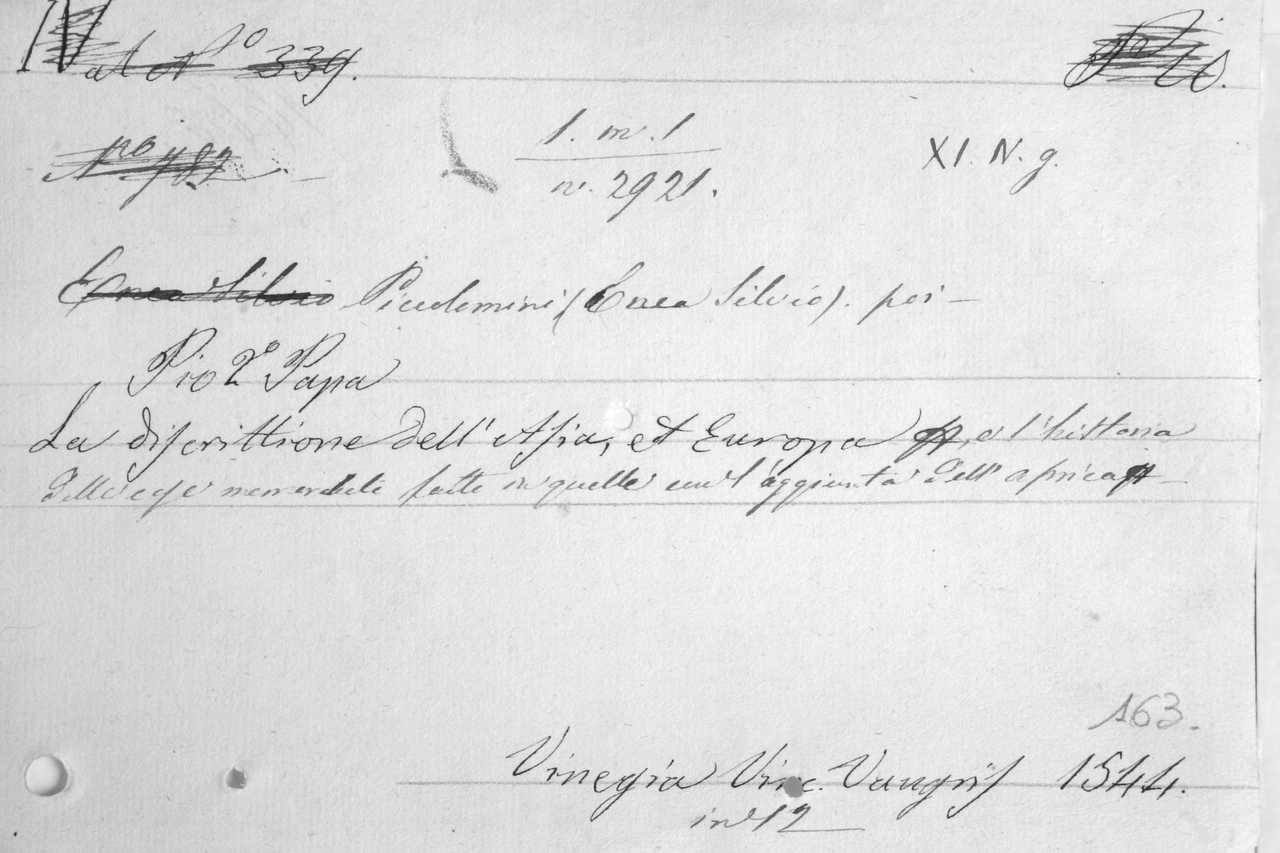 al N° 339.
N.ro 782.
1. m. 1
n. 2921.
XI. N. g.
Enea Silvio Piccolomini (Enea Silvio). poi —
Pio 2° Papa
La discrittione dell'Asia, et Europa e l'historia
delle cose memorabili fatte in quelle con l'aggionta dell'Africa
163.
Vinegia Vinc. Vaugris 1544.
in 12